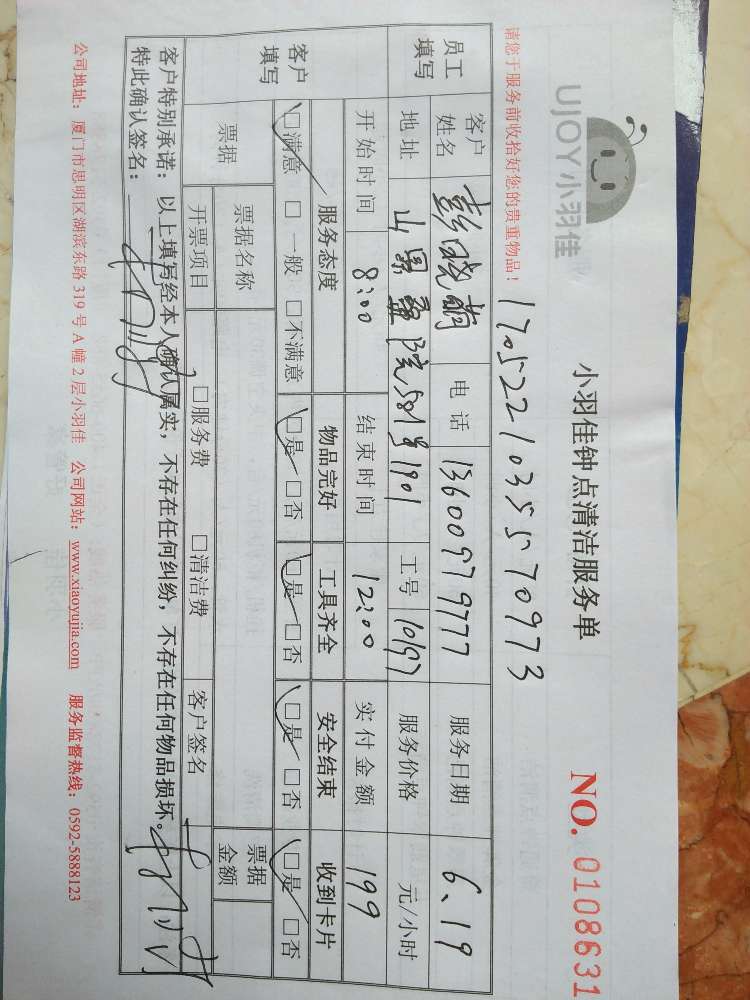 UJOY小羽佳
小羽佳钟点清洁服务单
NO. 0108631
请您于服务前收拾好您的贵重物品！
17052210355570973
员工填写
客户姓名 彭晓萌 电话 13600979777 服务日期 6.19
地址 山果 院581号1901 工号 10197 服务价格 元/小时
开始时间 8:00 结束时间 12:00 实付金额 199
客户填写
服务态度 物品完好 工具齐全 安全结束 收到卡片
☑满意 □一般 □不满意 ☑是 □否 ☑是 □否 ☑是 □否 ☑是 □否
票据 票据名称 票据金额
开票项目 □服务费 □清洁费 客户签名
客户特别承诺：以上填写经本人确认属实，不存在任何纠纷，不存在任何物品损坏。
特此确认签名：
公司地址：厦门市思明区湖滨东路 319 号 A 幢 2 层小羽佳 公司网站：www.xiaoyujia.com 服务监督热线：0592-5888123